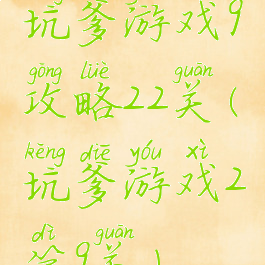 坑爹游戏9
gōng lüè guān
攻略22关(
kēng diē yóu xì
坑爹游戏2
dì guān
第9关)